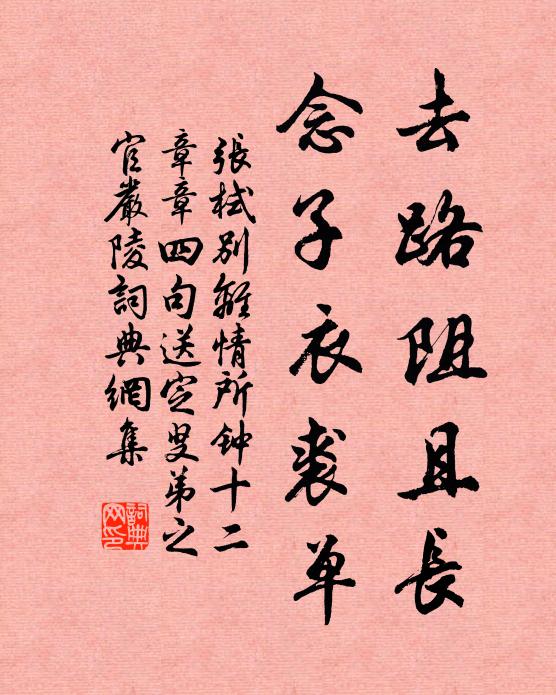 去路阻且長
念子衣裘单
張栻别離情所鈡十二
章章四句送定叟弟之
官嚴陵詞典網集
詞典
网印